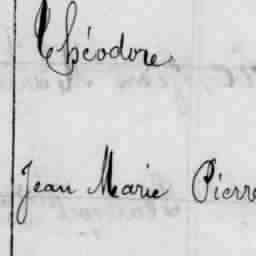 Théodore
Jean Marie Pierre